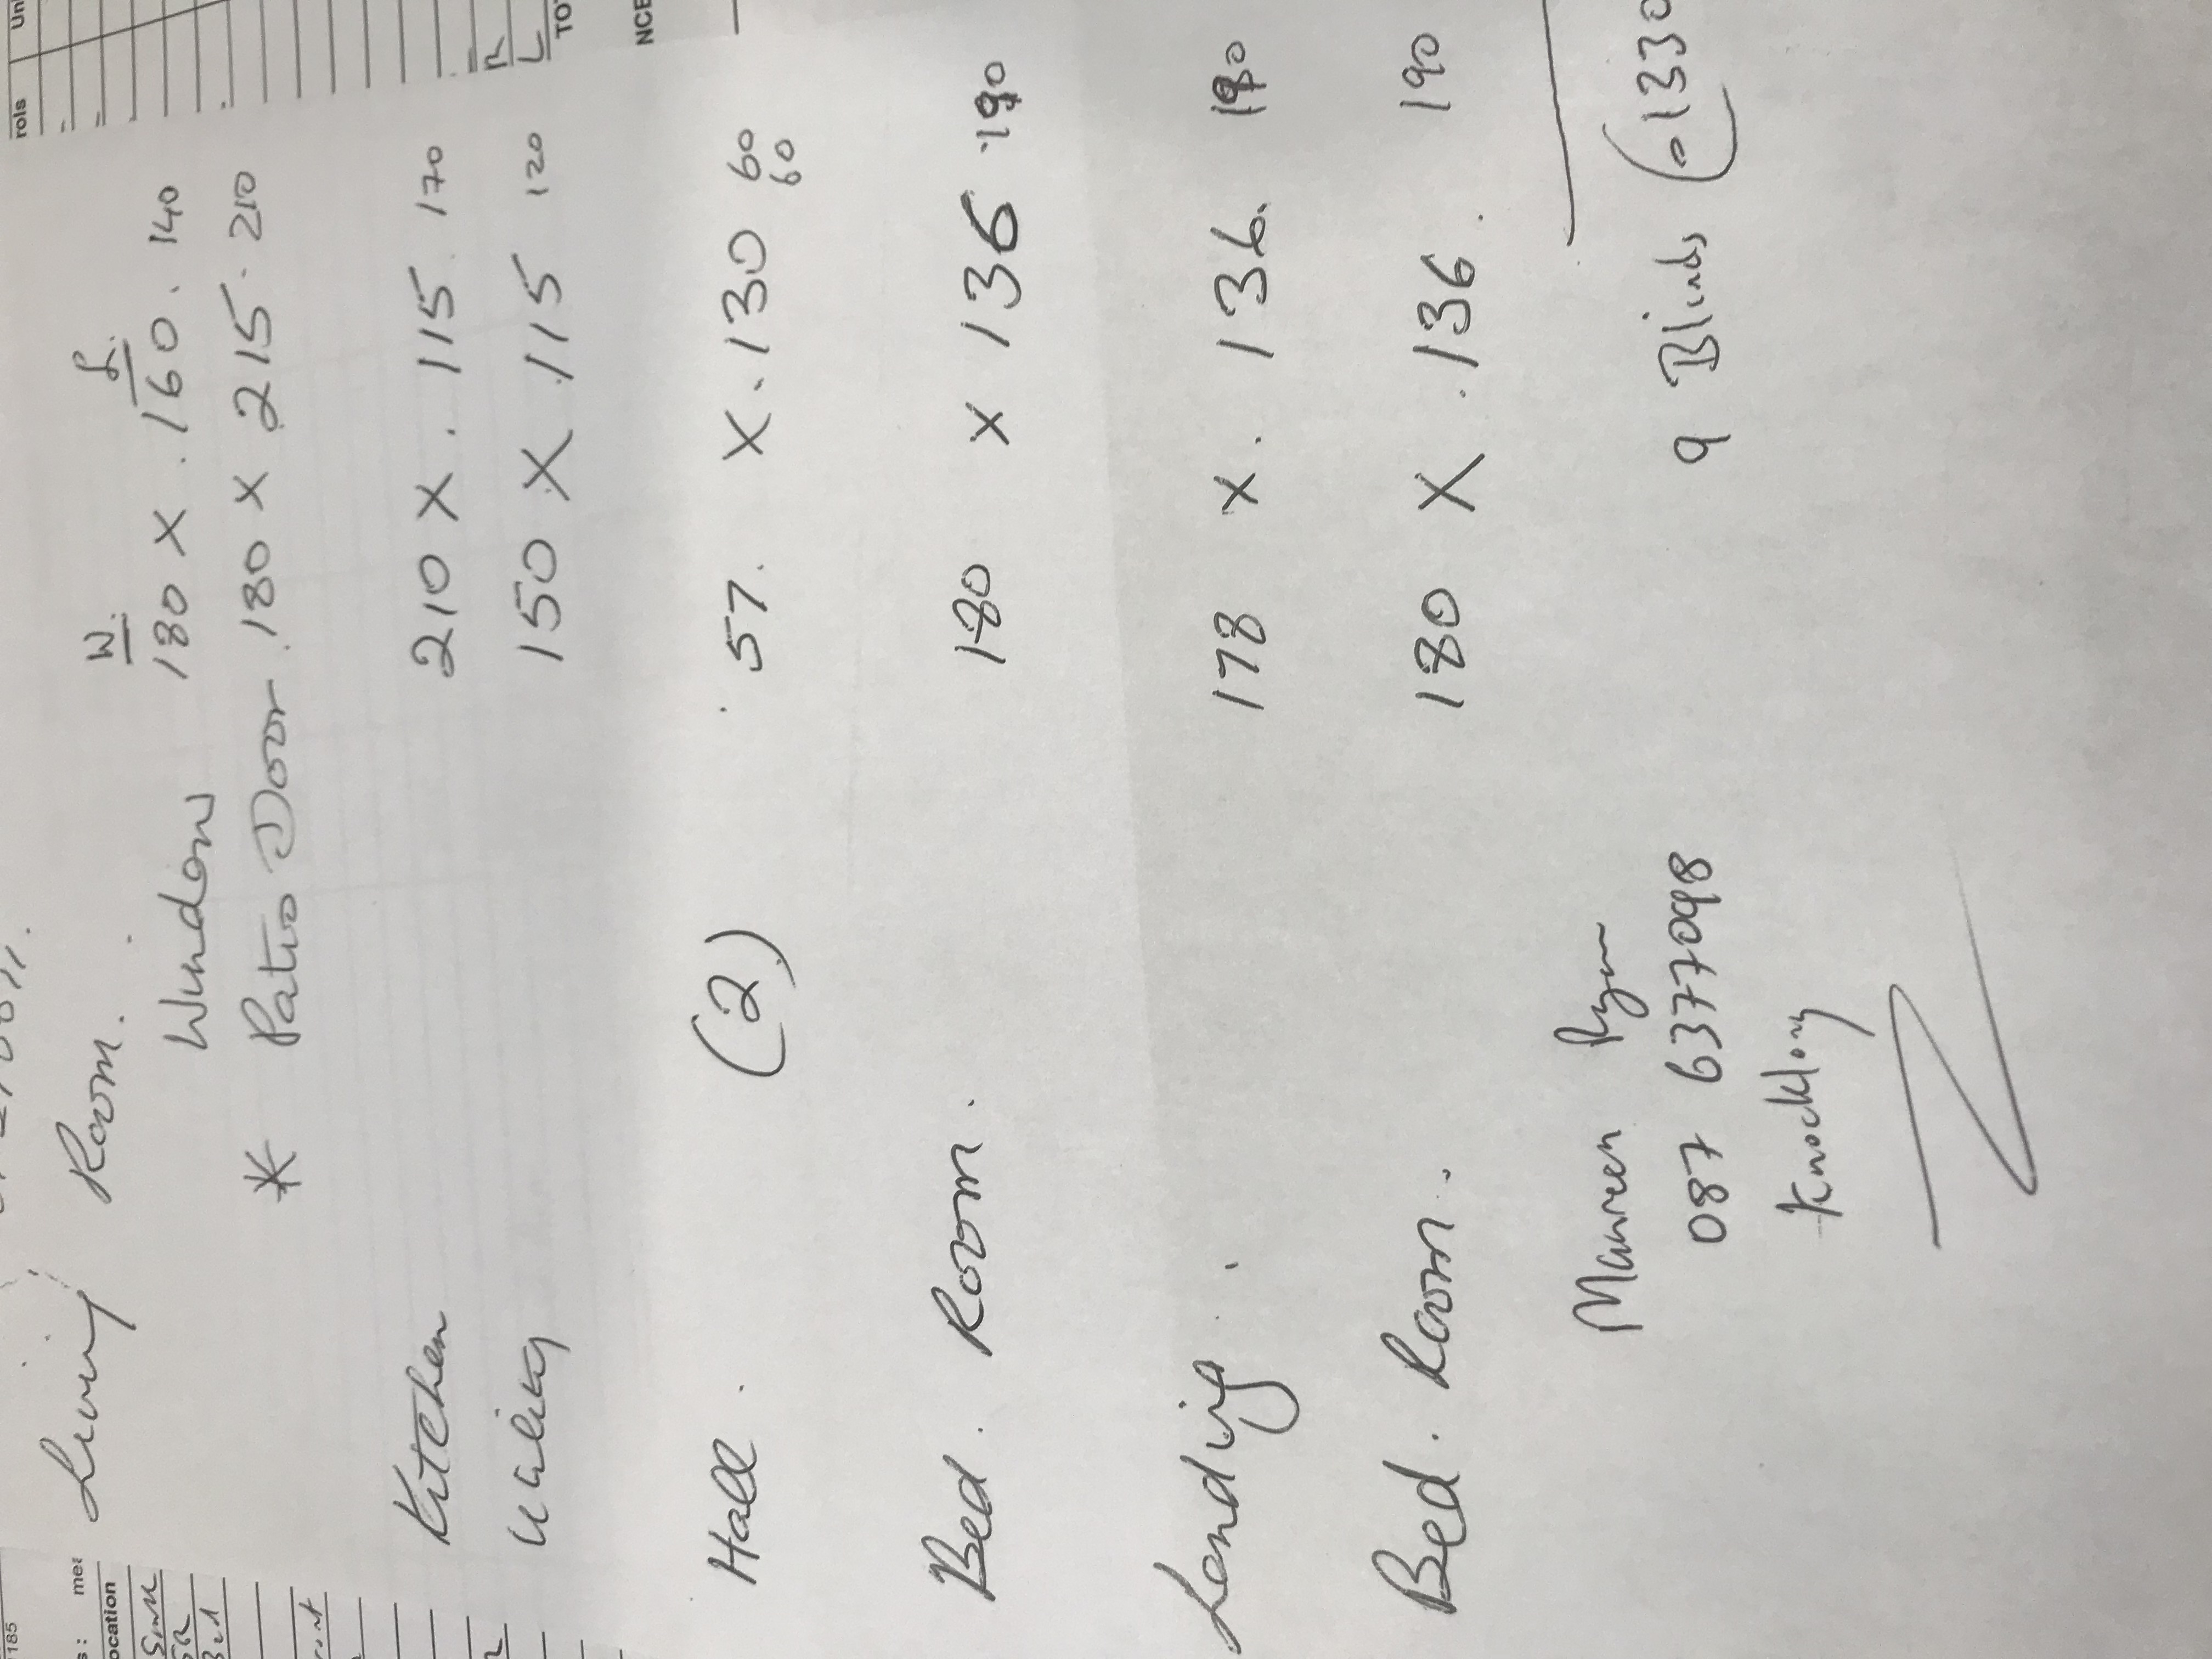 Living Room.
W. L.
Window 180 X . 160 . 140
* Patio Door . 180 X 215 . 210
Kitchen 210 X . 115 . 170
150 X . 115 120
Hall . (2) 57 . X . 130 60
60
Bed . Room . 180 X 136 . 190
Landing . 178 X . 136 . 190
Bed . Room . . 180 X . 136 . 190
9 Blinds 1330
Maureen Ryan
087 6377098
Knocklong
rols
NCE
185
ocation